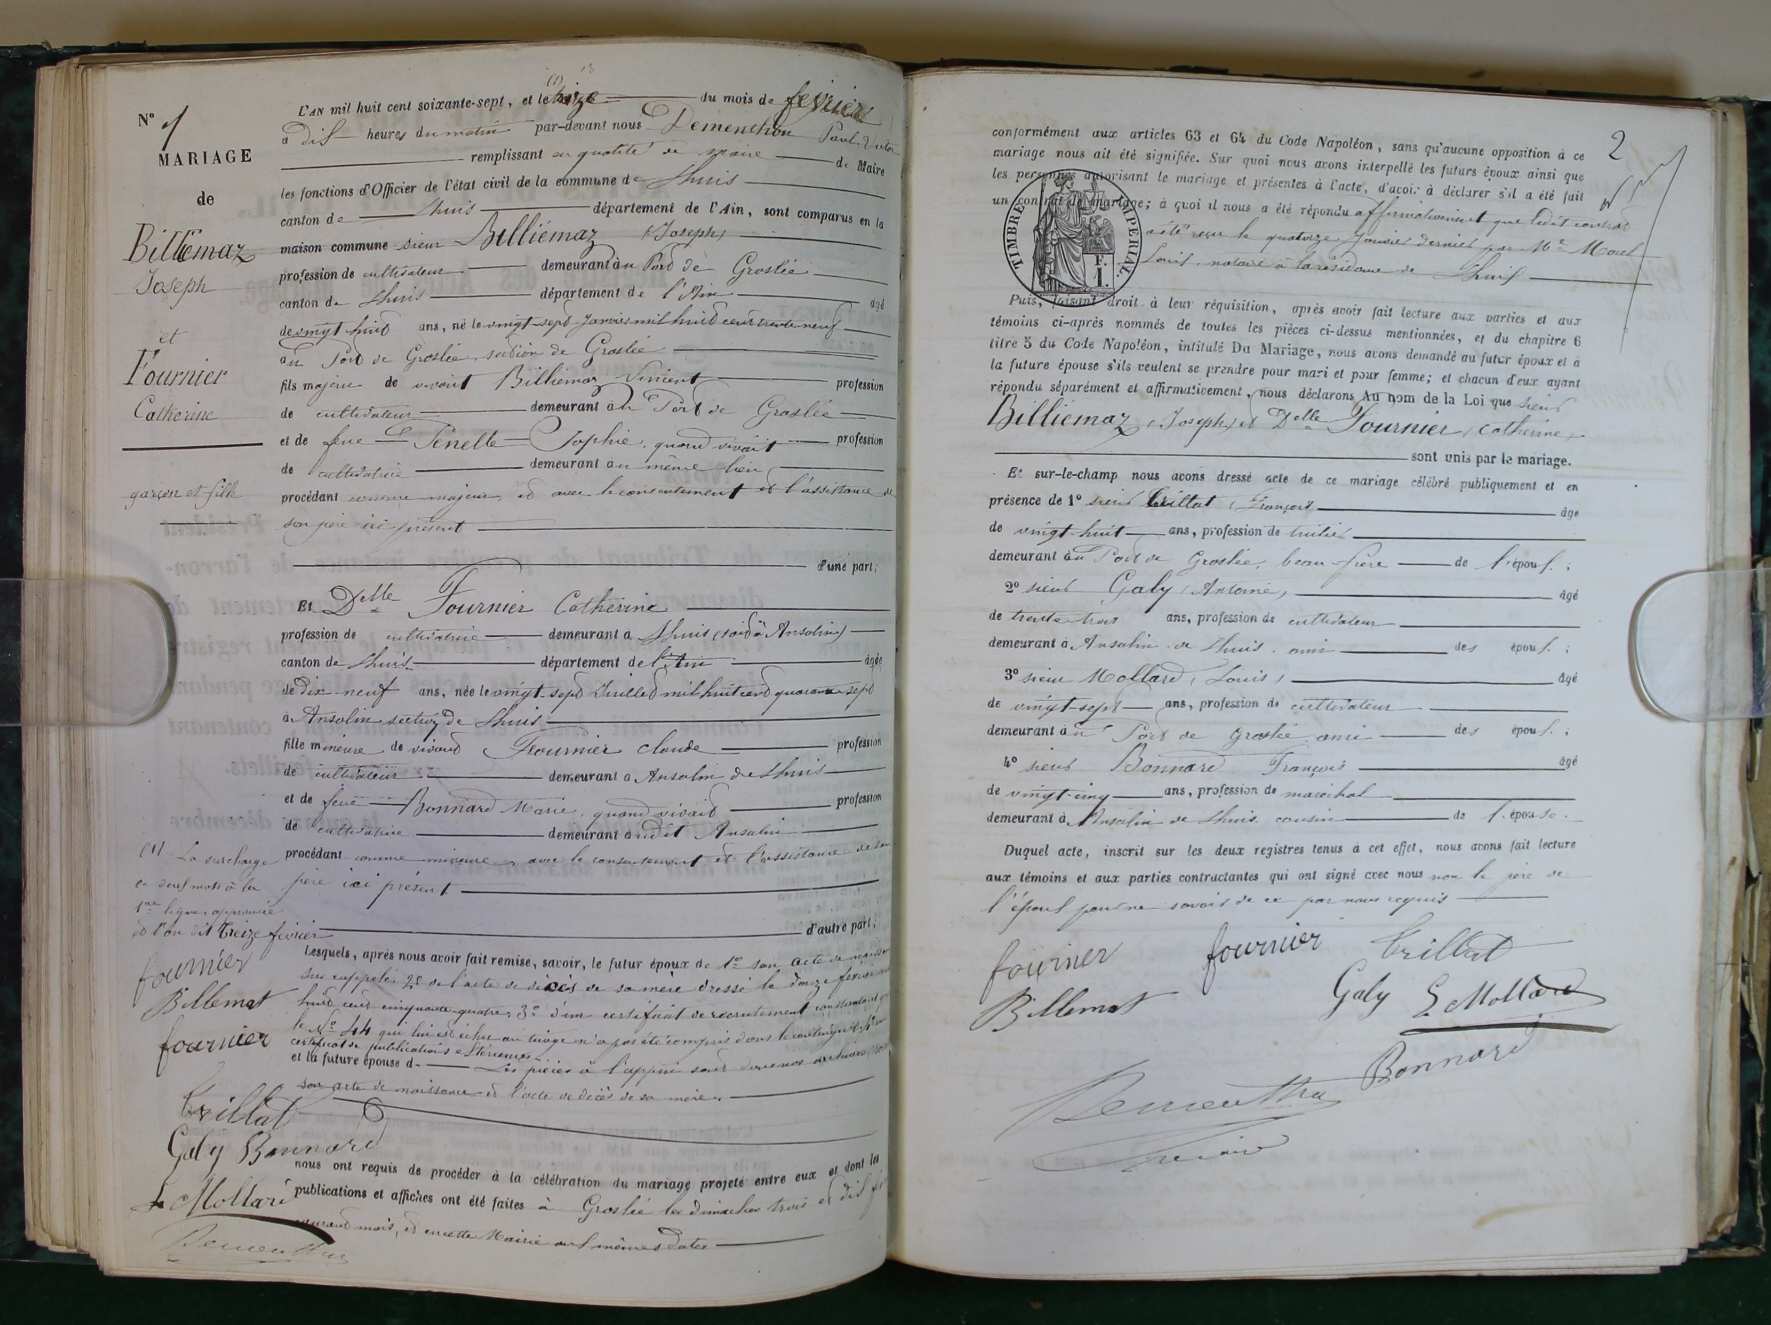 N° 1
MARIAGE
de
Billiemaz
Joseph
et
Fournier
Catherine
garçon et fille
(1)
L'AN mil huit cent soixante-sept, et le treize du mois de février
à dix heures du matin par-devant nous Dementhon Paul
remplissant en qualité de maire de Maire
les fonctions d'Officier de l'état civil de la commune de Lhuis
canton de Lhuis département de l'Ain, sont comparus en la
maison commune sieur Billiemaz (Joseph)
profession de cultivateur demeurant au Port de Groslée
canton de Lhuis département de l'Ain âgé
de vingt huit ans, né le vingt-sept Janvier mil huit cent trente neuf
au Port de Groslée, section de Groslée
fils majeur de vivant Billiemaz Vincent profession
de cultivateur demeurant au Port de Groslée
et de feue Penelle Sophie, quand vivait profession
de cultivatrice demeurant au même lieu,
procédant comme majeur et avec le consentement et l'assistance de
son père ici présent
d'une part;
Et Delle Fournier Catherine
profession de cultivatrice demeurant à Lhuis (soit à Ansolin)
canton de Lhuis département de l'Ain âgée
de dix-neuf ans, née le vingt-sept Juillet mil huit cent quarante-sept
à Ansolin section de Lhuis
fille mineure de vivant Fournier Claude profession
de cultivateur demeurant à Ansolin de Lhuis
et de feue Bonnard Marie, quand vivait profession
de cultivatrice demeurant audit Ansolin
procédant comme mineure, avec le consentement et l'assistance de son
père ici présent
d'autre part;
(1) La surcharge
de deux mots à la
1re ligne approuvée
et l'on dit treize février
fournier
Billemat
fournier
Trillat
Galy Bonnard
L Mollard
Dementhon
Lesquels, après nous avoir fait remise, savoir, le futur époux de 1° son acte de naissance
sus rappelé, 2° de l'acte de décès de sa mère dressé le douze février mil
huit cent cinquante-quatre, 3° d'un certificat de recrutement constatant que
le N° 44 qui lui est échu au tirage n'a pas été compris dans le contingent, 4° un
certificat de publications
et la future épouse d- Les pièces à l'appui sont dans nos archives
son acte de naissance et l'acte de décès de sa mère
nous ont requis de procéder à la célébration du mariage projeté entre eux et dont les
publications et affiches ont été faites à Groslée les dimanches trois et dix
courant mois, et en cette Mairie aux mêmes dates
2
conformément aux articles 63 et 64 du Code Napoléon, sans qu'aucune opposition à ce
mariage nous ait été signifiée. Sur quoi nous avons interpellé les futurs époux ainsi que
les personnes autorisant le mariage et présentes à l'acte, d'avoir à déclarer s'il a été fait
un contrat de mariage; à quoi il nous a été répondu affirmativement que ledit contrat
a été reçu le quatorze Janvier dernier par Me Morel
Louis, notaire à la résidence de Lhuis
TIMBRE IMPERIAL
F.
1.
Puis, faisant droit à leur réquisition, après avoir fait lecture aux parties et aux
témoins ci-après nommés de toutes les pièces ci-dessus mentionnées, et du chapitre 6
titre 5 du Code Napoléon, intitulé Du Mariage, nous avons demandé au futur époux et à
la future épouse s'ils veulent se prendre pour mari et pour femme; et chacun d'eux ayant
répondu séparément et affirmativement, nous déclarons Au nom de la Loi que sieur
Billiemaz (Joseph) et Delle Fournier (Catherine)
sont unis par le mariage.
Et sur-le-champ nous avons dressé acte de ce mariage célébré publiquement et en
présence de 1° sieur Trillat (François) âgé
de vingt-huit ans, profession de tuilier
demeurant au Port de Groslée, beau-frère de l'époux;
2° sieur Galy (Antoine) âgé
de trente-trois ans, profession de cultivateur
demeurant à Ansolin de Lhuis, ami des époux;
3° sieur Mollard (Louis) âgé
de vingt-sept ans, profession de cultivateur
demeurant au Port de Groslée, ami des époux;
4° sieur Bonnard François âgé
de vingt-cinq ans, profession de maréchal
demeurant à Ansolin de Lhuis, cousin de l'épouse.
Duquel acte, inscrit sur les deux registres tenus à cet effet, nous avons fait lecture
aux témoins et aux parties contractantes qui ont signé avec nous non le père de
l'époux pour ne savoir de ce par nous requis
fournier fournier Trillat
Billemat Galy L Mollard
Bonnard
Dementhon